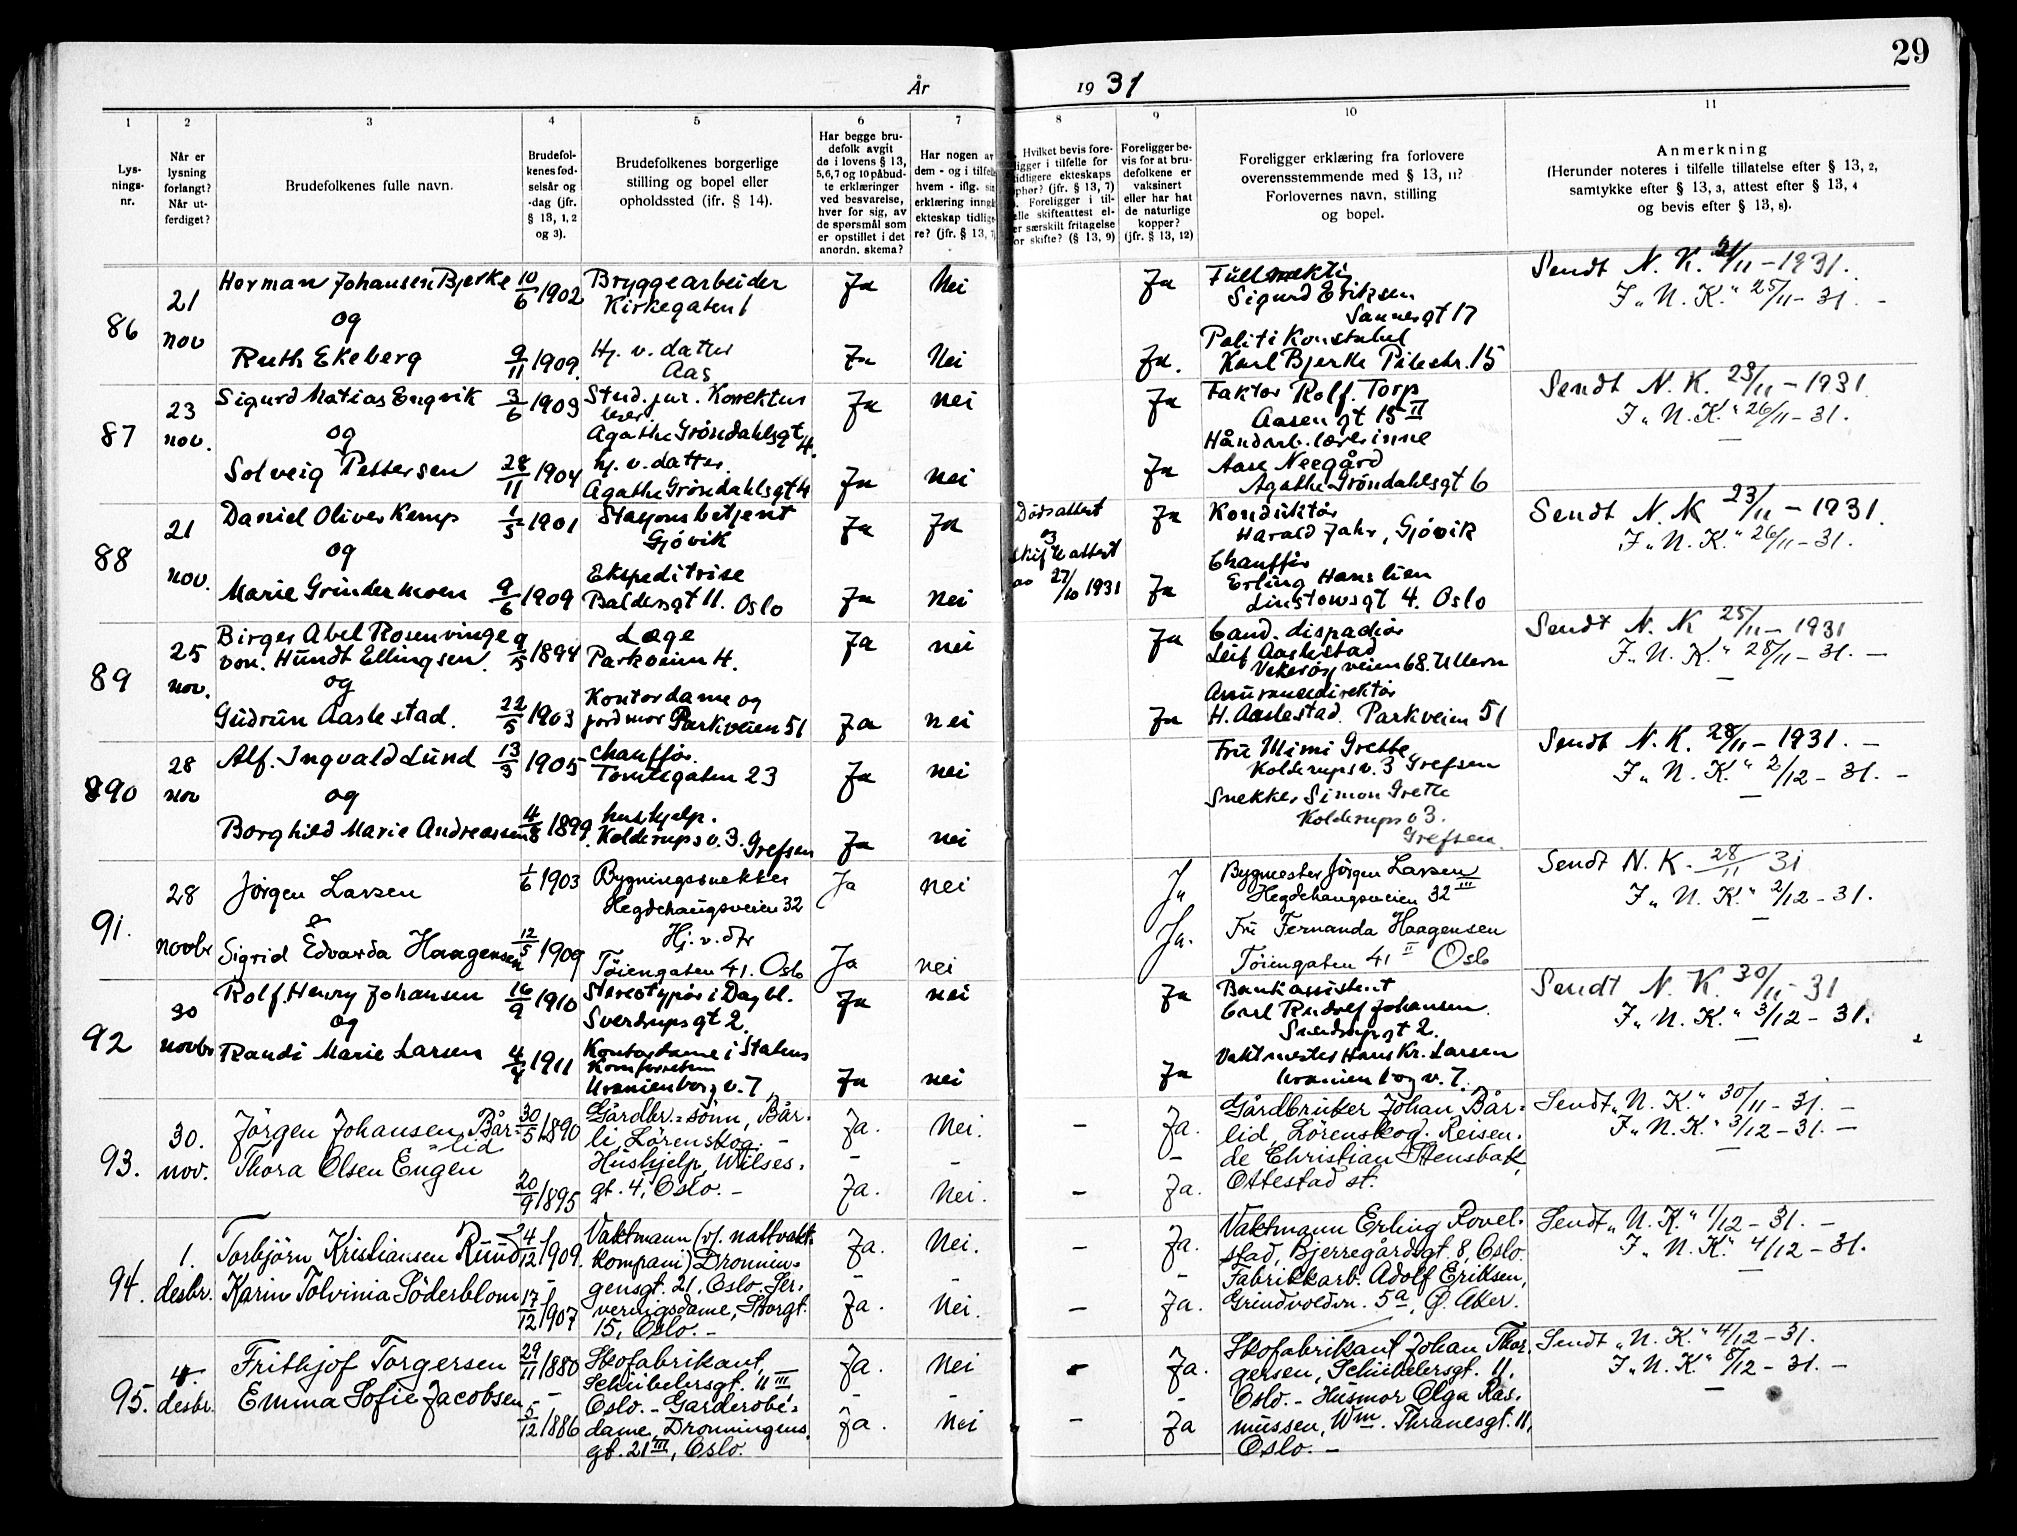 29
År 1931
1 2 3 4 5 6 7 8 9 10 11
Lys-
nings-
nr.
Når er
lysning
forlangt?
Når ut-
ferdiget?
Brudefolkenes fulle navn.
Brudefol-
kenes fød-
selsår og
-dag (jfr.
§ 13, 1, 2
og 3).
Brudefolkenes borgerlige
stilling og bopel eller
opholdssted (ifr. § 14).
Har begge bru-
defolk avgit
de i lovens § 13,
5, 6, 7 og 10 påbud-
te erklæringer
ved besvarelse,
hver for sig, av
de spørsmål som
er opstillet i det
anordn. skema?
Har nogen av
dem - og i tilfelle
hvem - iflg. sin
erklæring inngå
ekteskap tidlige-
re? (jfr. § 13, 7
Hvilket bevis fore-
ligger i tilfelle for
tidligere ekteskaps
ophør? (jfr. § 13, 7)
Foreligger i til-
felle skifteattest el-
er særskilt fritagelse
for skifte? (§ 13, 9)
Foreligger be-
vis for at bru-
defolkene er
vaksinert
eller har hat
de naturlige
kopper?
(jfr. § 13, 12)
Foreligger erklæring fra forlovere
overensstemmende med § 13, 11?
Forlovernes navn, stilling
og bopel.
Anmerkning
(Herunder noteres i tilfelle tillatelse efter § 13, 2,
samtykke efter § 13, 3, attest efter § 13, 4
og bevis efter § 13, 8).
86
21
nov
Herman Johansen Bjerke 10/6 1902
og
Ruth Ekeberg 9/11 1909.
Bryggearbeider
Kirkegaten 1
Hj. v. datter
Aas
Ja Nei
Ja Nei
Ja
Ja.
Fullmektig
Sigurd Eriksen
Sannergt 17
Politikonstabel
Karl Bjerke Pilestr. 15
Sendt N. K. 21/11 - 1931.
I „N. K." 25/11 - 31. -
87
23
nov.
Sigurd Matias Engvik 3/6 1909
og
Solveig Pettersen 28/11 1904
Stud. jur. Korrektur
leser
Agathe Grøndahlsgt 4.
hj. v. datter.
Agathe Grøndahlsgt 4
Ja nei
Ja nei
Ja
Ja
Faktor Rolf. Torp
Aasengt 15 II
Håndarb. lærerinne
Aase Neegård
Agathe Grøndahlsgt 6
Sendt N. K. 23/11 - 1931
I „N. K." 26/11 - 31.
88
21
nov.
Daniel Oliver Kemp 1/5 1901
og
Marie Grindermoen 9/6 1909
Stasjonsbetjent
Gjøvik
Ekspeditrise
Baldersgt 11. Oslo
Ja Ja
Ja Nei
Dødsattest
og
skifteattest
av 27/10 1931
Ja
Ja
Konduktør
Harald Jahr, Gjøvik
Chauffør
Erling Hanslien
Linstowsgt 4. Oslo
Sendt N. K 23/11 - 1931.
I „N. K." 26/11 - 31.
89
25
nov.
Birger Abel Rosenvinge 9/5 1894
von. Hundt Ellingsen
og
Gudrun Aastestad. 22/5 1903
Læge
Parkveien 4.
Kontordame og
jordmor Parkveien 51
Ja nei
Ja nei
Ja
Ja
Cand. dispasjør
Leif Aastestad
Vekerøyveien 68. Ullern
Assuransedirektør
H. Aastestad. Parkveien 51
Sendt N. K 25/11 - 1931
I „N. K." 28/11 - 31. -
890
28
nov
Alf. Ingvald Lund 13/3 1905
og
Borghild Marie Andreassen 4/8 1899.
Chauffør.
Tomtegaten 23
hushjelp.
Kolderups v. 3. Grefsen
Ja nei
Ja nei
Fru Mimi Grette
Kolderups v. 3 Grefsen
Snekker Simon Grette
Kolderups v 3.
Grefsen.
Sendt N. K. 28/11 - 1931. -
I „N. K." 2/12 - 31. -
91.
28
novbr
Jørgen Larsen 1/6 1903
&
Sigrid Edvarda Haagensen 12/5 1909
Bygningssnekker
Hegdehaugsveien 32
Hj. v. dtr
Tøiengaten 41. Oslo
Ja nei
Ja nei
Ja
Ja.
Bygmester Jörgen Larsen
Hegdehaugsveien 32 III
Fru Fernanda Haagensen
Töiengaten 41 II Oslo
Sendt N. K. 28/11 31
I „N. K." 2/12 - 31.
92
30
novbr
Rolf. Henry Johansen 16/9 1910
og
Randi Marie Larsen 4/4 1911
Stereotypør i Dagbl.
Sverdrupsgt 2.
Kontordame i Statens
Kornforretn
Uranienborg v. 7
Ja nei
Ja nei
Ja
Ja
Bankassistent
Carl Rudolf Johansen.
Sverdrupsgt 2.
Vaktmester Hans Kr. Larsen
Uranienborg v. 7.
Sendt N. K. 30/11 - 31
I „N. K." 3/12 - 31.
93.
30.
nov.
Jörgen Johansen Bår- 30/5 1890
lid
Thora Olsen Engen
20/9 1895
Gårdbr.=sönn, Bår-
li, Lörenskog. -
Hushjelp, Wilses-
gt. 4, Oslo. -
Ja. Nei. - Ja.
- - -
Ja. Nei. - Ja.
Gårdbruker Johan Bår-
lid, Lörenskog. Reisen-
de Christian Stensbak,
Ottestad st.
Sendt „N. K." 30/11 - 31. -
I „N. K." 3/12 - 31. -
94.
1.
desbr.
Torbjörn Kristiansen Rund 24/12 1909.
Karin Tolvinia Söderblom 17/12 1907
Vaktmann (v/. nattvakt-
kompani) Dronnin-
gensgt. 21, Oslo. Ser-
veringsdame, Storgt.
15, Oslo. -
Ja. Nei. - Ja.
- - -
Ja. Nei. - Ja.
Vaktmann Erling Rovel-
stad, Bjerregårdsgt. 8, Oslo.
Fabrikkarb. Adolf Eriksen,
Grindvoldvn. 5a, Ø. Aker.
Sendt „N. K." 1/12 - 31. -
I „N. K." 4/12 - 31.
95.
4.
desbr.
Frithjof Torgersen 29/11 1880
Emma Sofie Jacobsen -
5/12 1886
Skofabrikant,
Schübelersgt. 11 III
Oslo. - Garderobe-
dame, Dronningens-
gt. 21 III, Oslo.
Ja. Nei - Ja.
- - -
Ja. Nei - Ja
Skofabrikant Johan Thor-
gersen, Schübelersgt. 11,
Oslo. - Husmor Olga Ras-
mussen, Wm. Thranesgt. 11,
Oslo. -
Sendt „N. K." 4/12 - 31.
I „N. K." 8/12 - 31. -